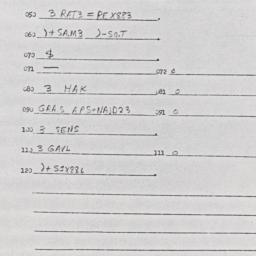 050 3 RAT3 = PEX883
060 )+SAM3 )-SO.T
070 $
071 — 072 0
080 3 HAK 081 0
090 GRAS APS+NAID23 091 0
100 3 SENS
110 3 GAVL 111 0
120